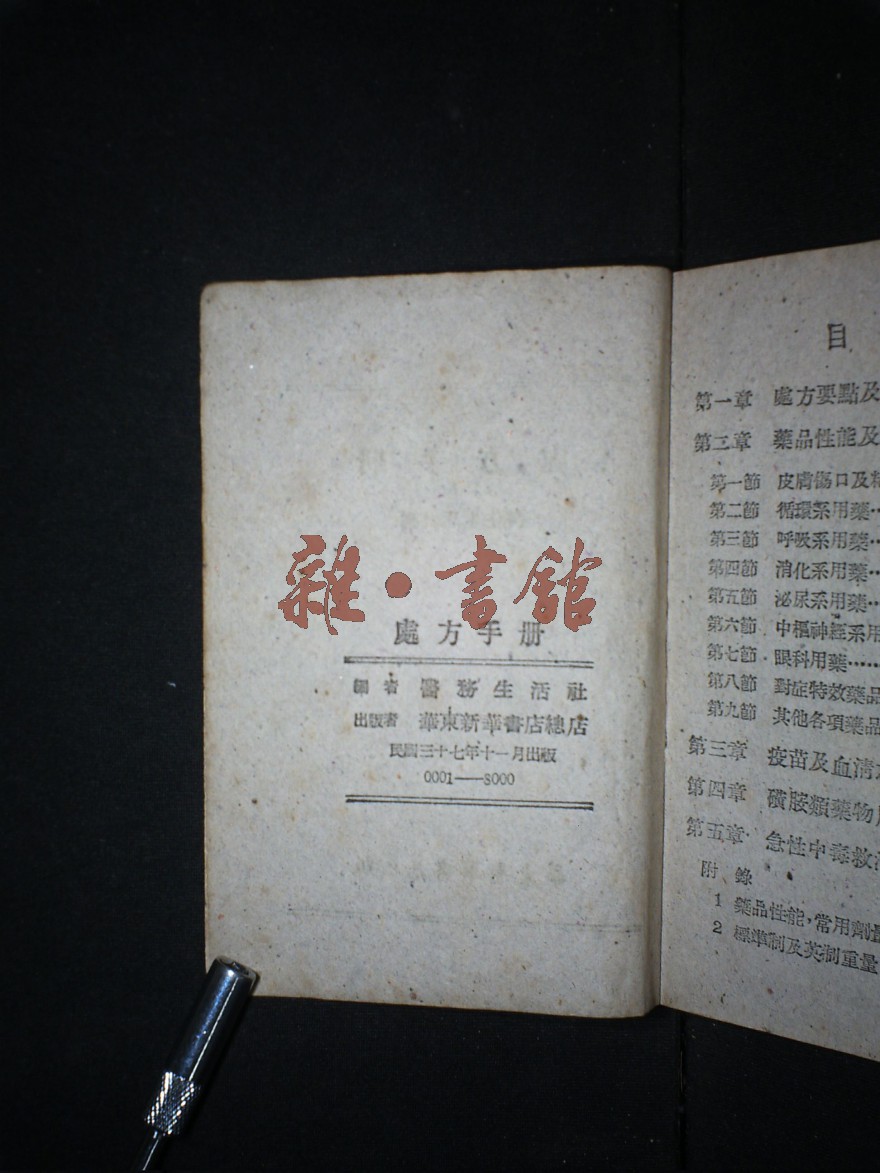 雜·書館
處方手册
編者 醫務生活社
出版者 華東新華書店總店
民國三十七年十一月出版
0001——8000
目
第一章 處方要點及
第二章 藥品性能及
第一節 皮膚傷口及粘
第二節 循環系用藥…
第三節 呼吸系用藥…
第四節 消化系用藥…
第五節 泌尿系用藥…
第六節 中樞神經系用
第七節 眼科用藥……
第八節 對症特效藥品
第九節 其他各項藥品
第三章 疫苗及血清
第四章 磺胺類藥物
第五章 急性中毒救
附錄
1 藥品性能，常用劑量
2 標準制及英制重量